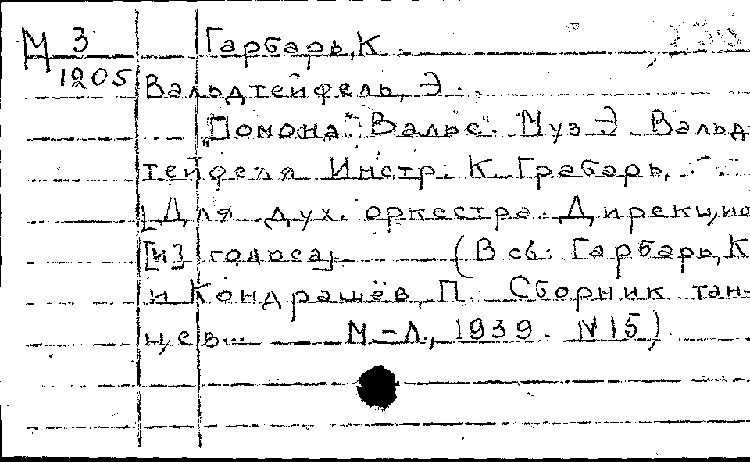 М 3 Гарбарь, К
1205 Вальдтейфель, Э.
"Помона". Вальс. Муз. Э. Вальд-
тейфеля. Инстр. К. Грабарь.
[Для дух. оркестра. Дирекцио
[и] голоса]. (В сб: Гарбарь, К
и Кондрашёв, П. Сборник тан-
цев... М.-Л., 1939. N 15)